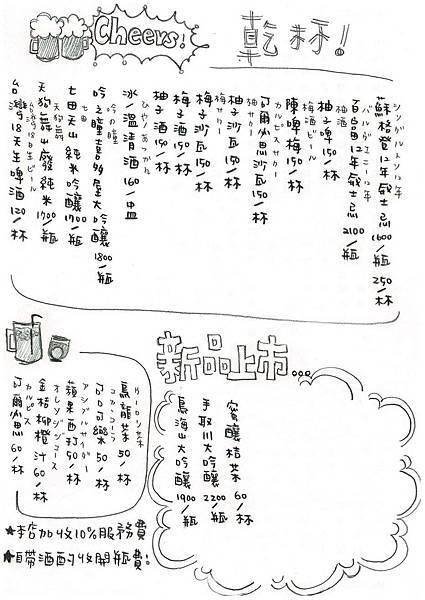 Cheers!
乾杯!
シングルトン12年
蘇格登12年威士忌 1600/瓶 250/杯
バルヴェニー12年
百富12年威士忌 2100/瓶
柚酒ビール
柚子啤 150/杯
梅酒ビール
陳啤梅 150/杯
カルピスサワー
可爾必思沙瓦 150/杯
柚サワー
柚子沙瓦 150/杯
梅サワー
梅子沙瓦 150/杯
梅子酒 150/杯
柚子酒 150/杯
ひや/あつかん
冰/溫清酒 160/中盅
吟の瞳
吟之瞳喜多屋大吟釀 1800/瓶
七田
七田天山純米吟釀 1700/瓶
天狗舞
天狗舞山廢純米 1700/瓶
台湾18日生ビール
台灣18天生啤酒 120/杯
新品上市...
蜜釀桔茶 60/杯
手取川大吟釀 2200/瓶
鳥海山大吟釀 1900/瓶
ウーロン茶
烏龍茶 50/杯
コカコーラ
可口可樂 50/杯
アップルサイダー
蘋果西打 50/杯
オレンジジュース
金桔柳橙汁 60/杯
カルピス
可爾必思 60/杯
★本店加收10%服務費
★自帶酒酌收開瓶費!